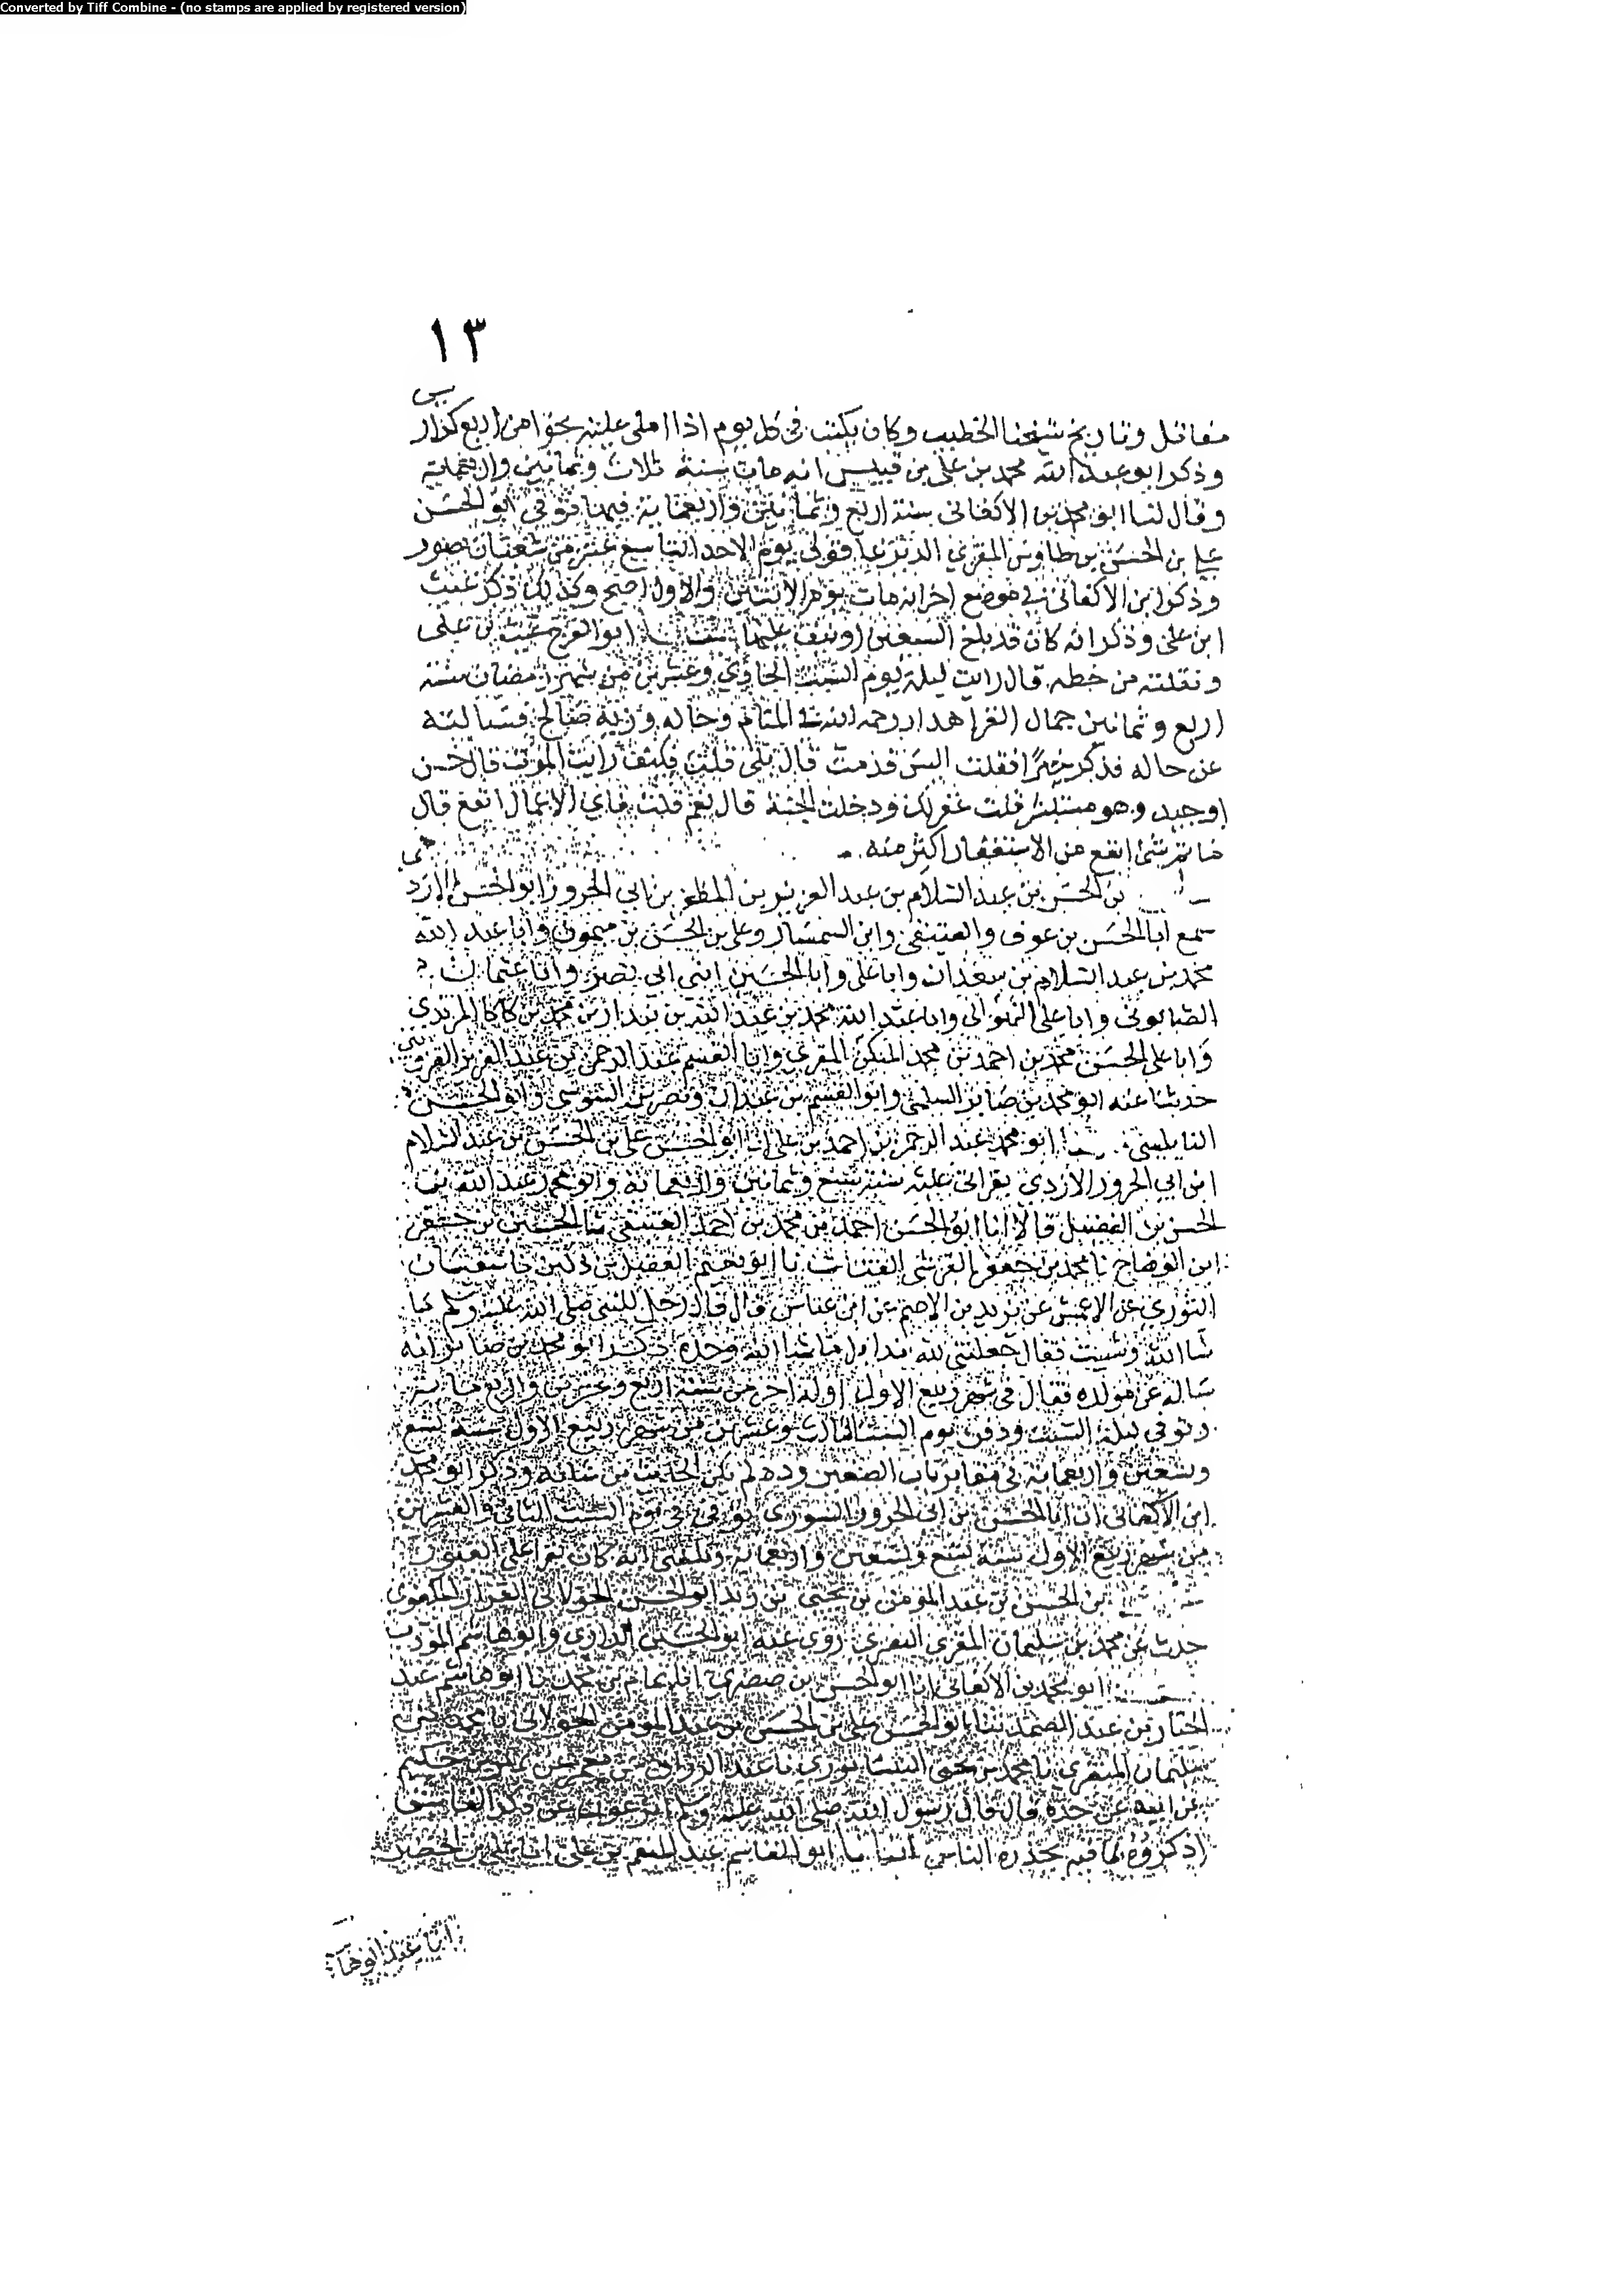 Converted by Tiff Combine - (no stamps are applied by registered version)
١٣
مقاتل وتاريخ شيخنا الخطيب وكان يكتب في كل يوم اذا املي عليه نحوا من اربع
وذكر ابو عبد الله محمد بن علي بن قبيس انه مات سنة ثلاث وثمانين واربعماية
وقال لنا ابو محمد بن الاكفاني سنة اربع وثمانين واربعماية فيها توفي ابو الحسن
علي بن الحسن بن طاوس المقري الديرعاقولي يوم الاحد التاسع عشر من شعبان بصور
وذكر ابن الاكفاني في موضع اخر انه مات يوم الاثنين والاول اصح وكذلك ذكر غيث
ابن علي وذكر انه كان قد بلغ السبعين او نيف عليها ابو الفرج غيث بن علي
ونقلته من خطه قال رايت ليلة يوم السبت الحادي وعشرين من شهر رمضان سنة
اربع وثمانين جمال القرا هذا رحمه الله في المنام وحاله وزيه صالح فسالته
عن حاله فذكر خيرا فقلت اليس قد مت قال بلى قلت فكيف رايت الموت قال حسن
او جيد وهو مستبشر قلت غفر لك ودخلت الجنة قال نعم قلت فاي الاعمال انفع قال
ما ثم شئ انفع من الاستغفار اكثر منه
بن الحسن بن عبد السلام بن عبد العزيز بن المظفر بن ابي الحزور ابو الحسن الازد
سمع ابا الحسن بن عوف والعتيقي وابن السمسار وعلي بن الحسن بن ميمون وابا عبد الله
محمد بن عبد السلام بن سعدان وابا علي وابا الحسين ابني ابي نصر وابا عثمان
الصابوني وابا علي الاهوازي وابا عبد الله محمد بن عبد الله بن بندار بن محمد بن كاكا المرندي
وابا علي الحسن محمد بن احمد بن محمد المقري وابا القسم عبد الرحمن بن عبد العزيز
حدثنا عنه ابو محمد بن صابر السلمي وابو القسم بن عبدان ونصر بن السوسي وابو الحسن
النابلسي ابو محمد عبد الرحمن بن احمد بن علي انا ابو الحسن علي بن الحسن بن عبد السلام
ابن ابي الحزور الازدي بقراتي عليه سنة سبع وثمانين واربعمائة وابو محمد عبد الله بن
الحسن بن الفضيل قالا انا ابو الحسن احمد بن محمد بن احمد العتيقي نا الحسين بن جعفر
ابن الوضاح نا محمد بن جعفر القرشي القتات نا ابو نعيم الفضل بن دكين نا سفيان
الثوري عن الاعمش عن يزيد بن الاصم عن ابن عباس قال قال رجل للنبي صلى الله عليه وسلم ما
شا الله وشيت فقال جعلتني لله ندا بل ما شا الله وحده ذكر ابو محمد بن صابر انه
ساله عن مولده فقال في شهر ربيع الاول اوله اخر من سنة اربع وعشرين واربع مايه
وتوفي ليلة السبت ودفن يوم السبت الثالث وعشرين من شهر ربيع الاول سنة تسع
وتسعين واربعماية في مقابر باب الصغير وده لم يكن الحديث من شانه وذكر ابو محمد
ابن الاكفاني ان ابا الحسن بن ابي الحزور توفي في يوم السبت الثاني والعشرين
من شهر ربيع الاول سنة تسع وتسعين واربعمائة وبلغني انه كان يقرا على القبور
بن الحسن بن عبد المومن بن يحيى بن زيد ابو الحسن الخولاني القزاز
حدث عن محمد بن سليمان المقري روى عنه ابو الحسين الرازي وابو هاشم المودب
ابو محمد بن الاكفاني انا ابو الحسن بن صصرى انا تمام بن محمد نا ابو هاشم عبد
الجبار بن عبد الصمد نا ابو الحسن علي بن الحسن بن عبد المومن الخولاني نا محمد بن
سليمان المنقري نا محمد بن يحيى النيسابوري نا عبد الرزاق عن معمر عن بهز بن حكيم
عن ابيه عن جده قال قال رسول الله صلى الله عليه وسلم اترعون عن ذكر الفاسق
اذكروه بما فيه يحذره الناس انبانا ابو القاسم عبد المنعم بن علي انا علي بن الخضر
انا عبد الوهاب